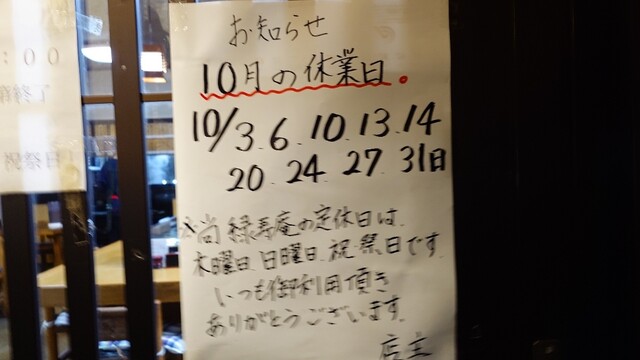 お知らせ
10月の休業日。
10/3. 6. 10. 13. 14
20. 24. 27. 31日
※尚 緑寿庵の定休日は、
木曜日、日曜日、祝・祭日です。
いつも御利用頂き
ありがとうございます。
店主
:00
終了
祝祭日